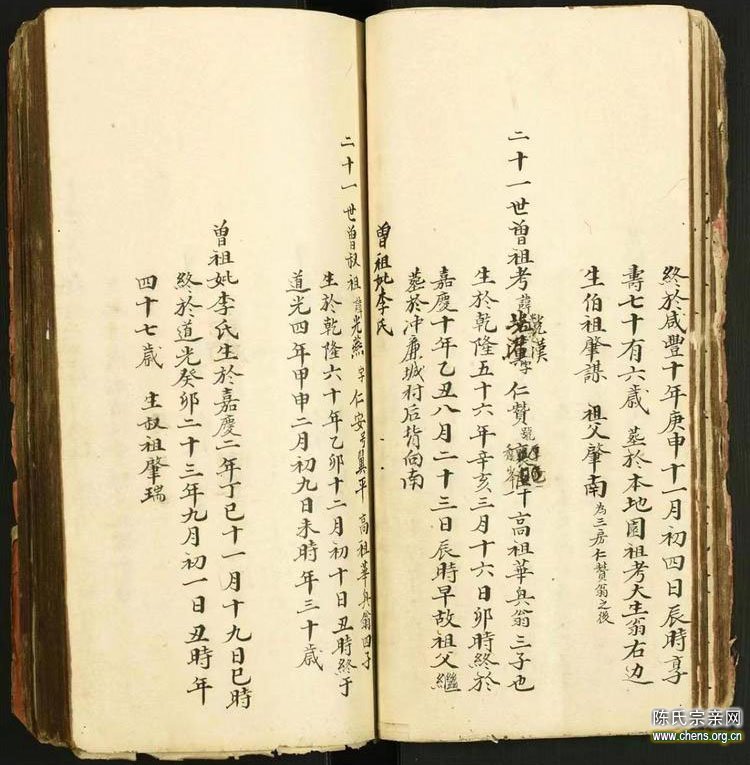 終於咸豐十年庚申十一月初四日辰時享
壽七十有六歲　墓於本地園祖考大生翁右边
生伯祖肇謀　祖父肇南為三房仁贊翁之後
二十一世曾祖考諱號漢字仁贊號高祖華兵翁三子也
生於乾隆五十六年辛亥三月十六日卯時終於
嘉慶十年乙丑八月二十三日辰時早故祖父繼
墓於沖廉城村后背向南
曾祖妣李氏
二十一世曾叔祖諱光燕字仁安号翼平　高祖華兵翁四子
生於乾隆六十年乙卯十二月初十日丑時終于
道光四年甲申二月初九日未時年三十歲
曾祖妣李氏生於嘉慶二年丁巳十一月十九日巳時
終於道光癸卯二十三年九月初一日丑時年
四十七歲　生叔祖肇瑞
陈氏宗亲网
www.chens.org.cn